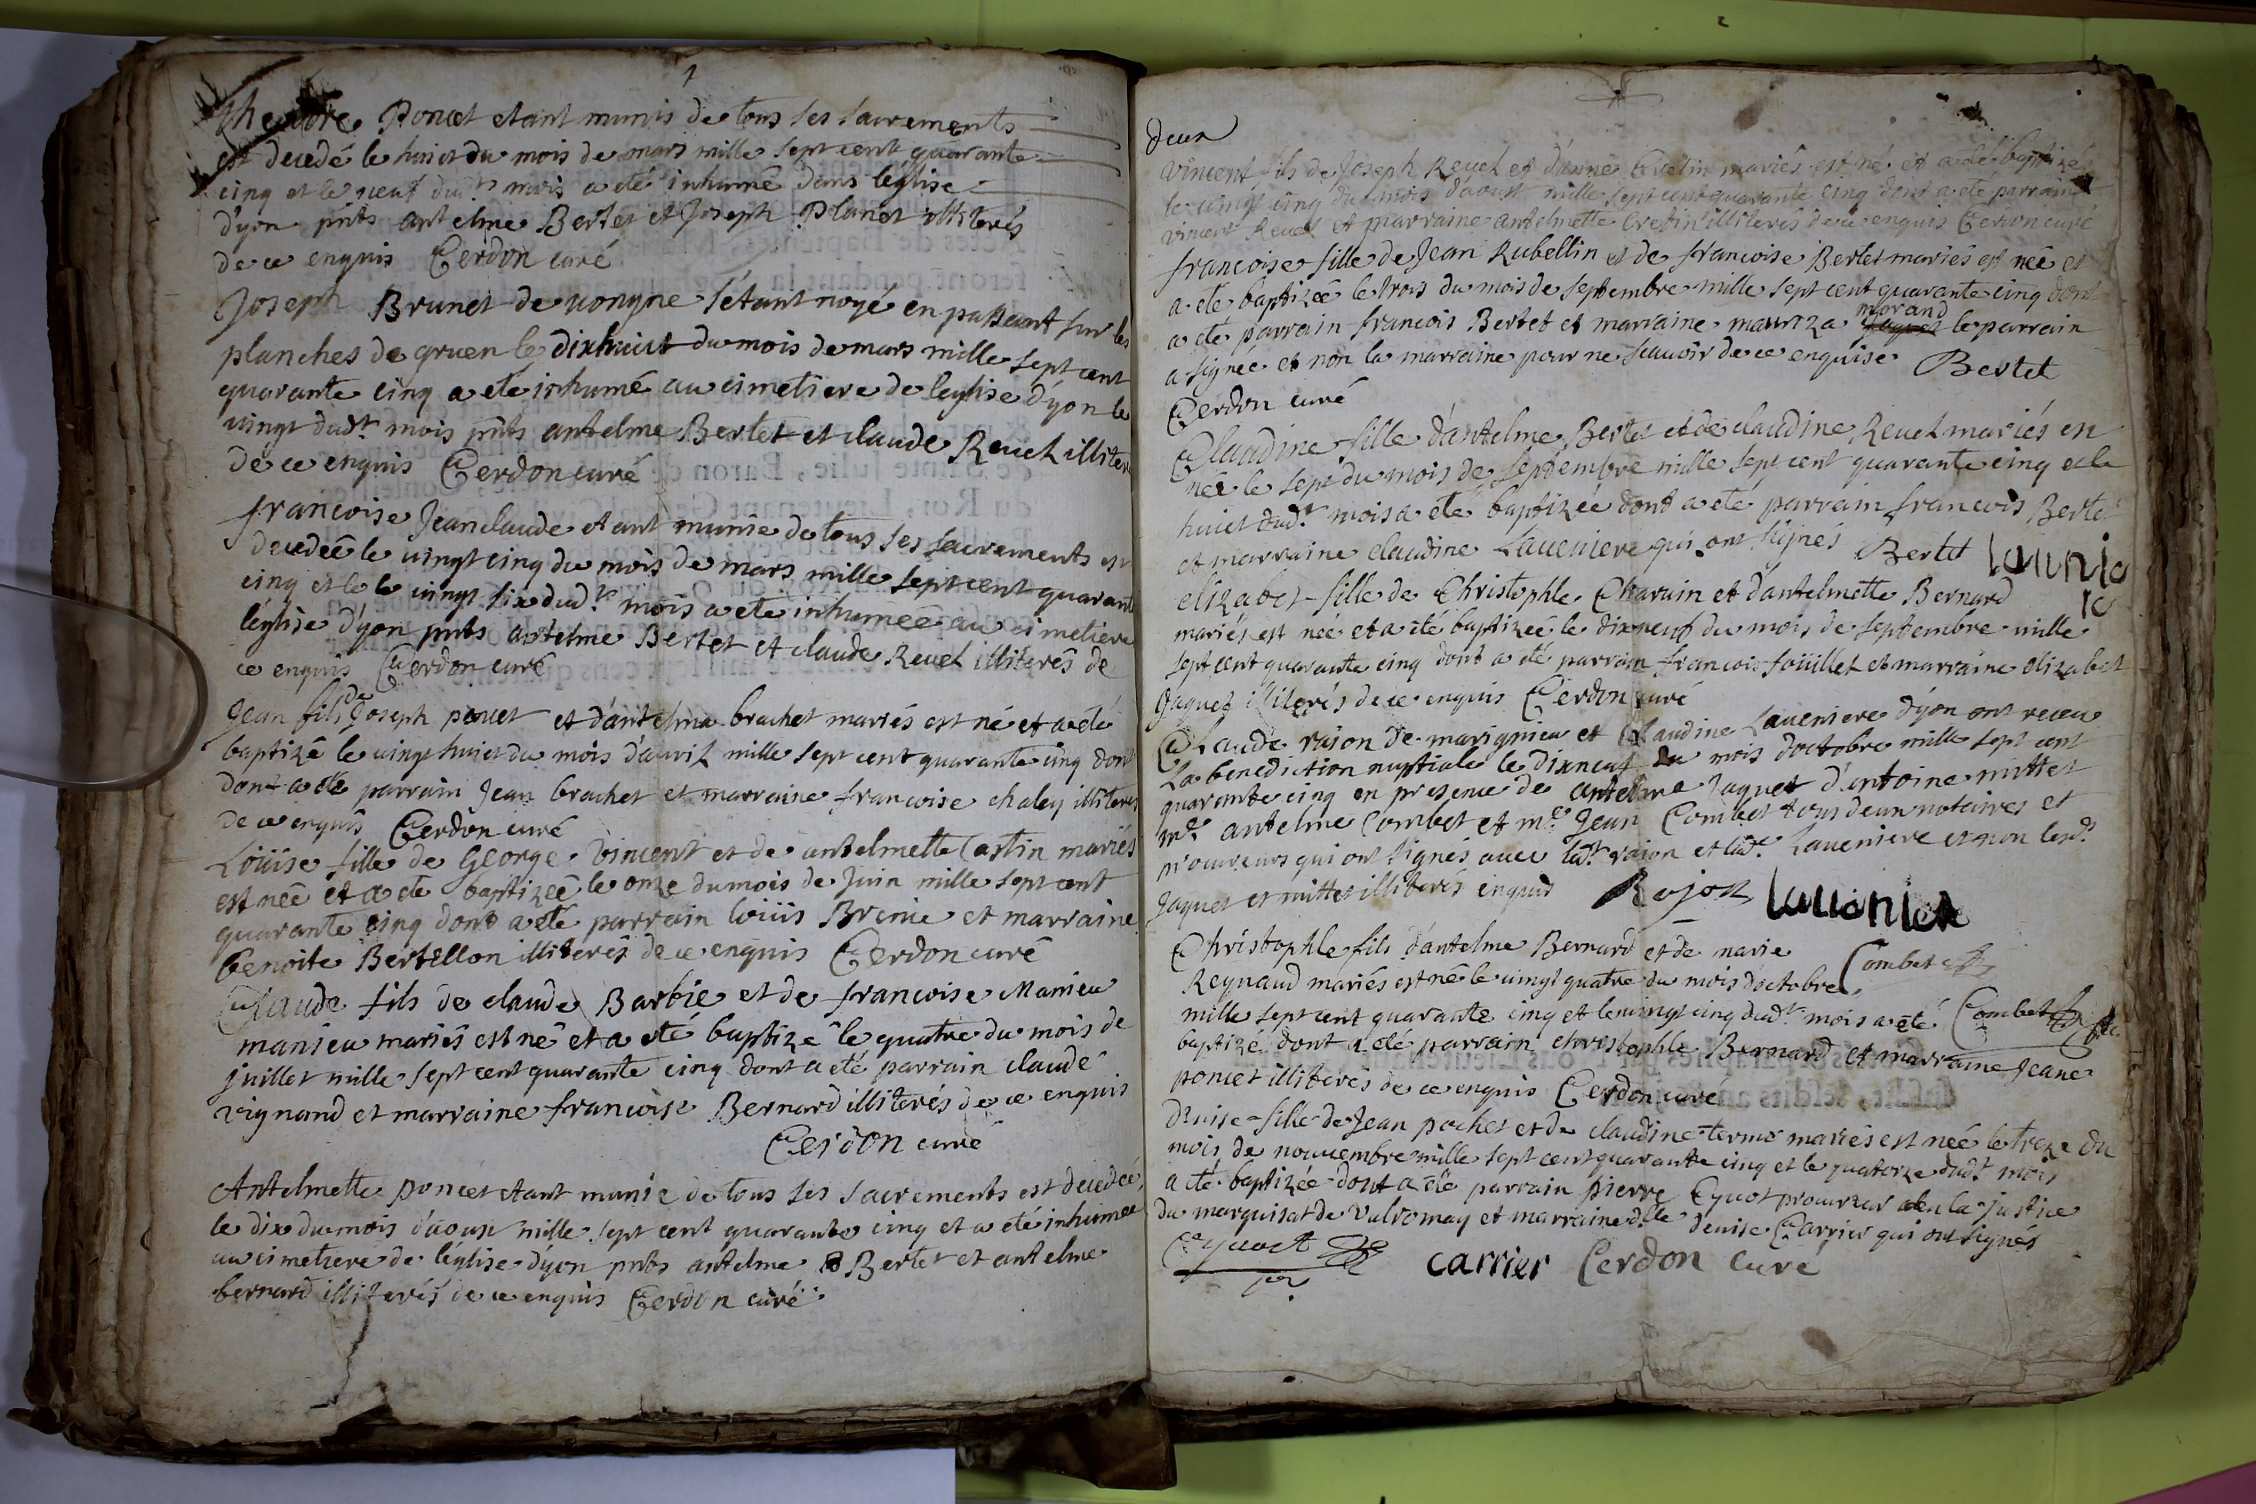 1
theodore Poncet etant munis de tous ses sacrements
est decedé le huict du mois de mars mille sept cent quarante
cinq et le neuf dudt mois a eté inhumé dans leglise
d'yon pnts antelme Bertet et Joseph Planet illiterés
de ce enquis Cerdon curé
Joseph Brunet de uongne s'etant noyé en passant sur les
planches de gruen le dixhuict du mois de mars mille sept cent
quarante cinq a eté inhumé au cimetiere de leglise d'yon le
uingt dudt mois pnts antelme Bertet et claude Reuel illiteré
de ce enquis Cerdon curé
francoise Jeanclaude etant munie de tous ses sacrements est
decedeé le uingt cinq du mois de mars mille sept cent quarante
cinq et le le uingt six dudt mois a eté inhumeé au cimetiere
léglise d'yon pnts antelme Bertet et claude Reuel illiterés de
ce enquis Cerdon curé
Jean fils de Joseph et d'antelma brachet mariés est né et a eté
baptizé le uingt huict du mois d'auril mille sept cent quarante cinq dont
dont a eté parrain Jean brachet et marraine francoise chaley illiterés
de ce enquis Cerdon curé
Loüise fille de George Vincent et de antelmette Castin mariés
est neé et a eté baptizeé le onze du mois de Juin mille sept cent
quarante cinq dont a eté parrain loüis Brenie et marraine
Benoite Bertellon illiterés de ce enquis Cerdon curé
Claude fils de claude Barbie et de francoise Manieu
manieu mariés est né et a eté baptizé le quatre du mois de
juillet mille sept cent quarante cinq dont a eté parrain claude
vignand et marraine francoise Bernard illiterés de ce enquis
Cerdon curé
Antelmette poncet etant munie de tous ses sacrements est decedeé
le dix du mois d'aoust mille sept cent quarante cinq et a eté inhumeé
au cimetiere de léglise d'yon pnts antelme Bertet et antelme
bernard illiterés de ce enquis Cerdon curé
deux
Vincent fils de Joseph Reuel et d'anne Cretin mariés est né et a eté baptizé
le uingt cinq du mois d'aoust mille sept cent quarante cinq dont a eté parrain
vincent Reuel et marraine antelmette Cretin illiterés de ce enquis Cerdon curé
francoise fille de Jean Rubellin et de francoise Bertet mariés est neé et
a eté baptizeé le trois du mois de septembre mille sept cent quarante cinq dont
a eté parrain francois Bertet et marraine mauriza morand le parrain
a signée et non la marraine pour ne scauoir de ce enquise Bertet
Cerdon curé
Claudine fille d'antelme Bertet et de claudine Reuel mariés en
neé le sept du mois de septembre mille sept cent quarante cinq et le
huict dudt mois a eté baptizée dont a eté parrain francois Berte
et marraine claudine Laueniere qui ont signés Bertet launie
re
elizabet fille de Christophle Charuin et d'antelmette Bernard
mariés est neé et a eté baptizeé le dixneuf du mois de septembre mille
sept cent quarante cinq dont a eté parrain francois foüillet et marraine elizabet
Jaquet illiterés de ce enquis Cerdon curé
Claude raion de marignieu et Claudine Laueniere d'yon ont receu
La benediction nuptiale le dixneuf du mois d'octobre mille sept cent
quarante cinq en presence de antelme Jaquet d'antoine mittet
me antelme Combet et me Jean Combet tous deux notaires et
procureurs qui ont signés auec ladt raion et ladt Laueniere et non lesdt
Jaquet et mittet illiterés enquis Rojon lauoniere
Christophle fils d'antelme Bernard et de marie Combet
Reynaud mariés est né le uingt quatre du mois d'octobre
mille sept cent quarante cinq et le uingt cinq dudt mois a eté Combet
baptizé dont a eté parrain christophle Bernard et marraine Jeane
poncet illiterés de ce enquis Cerdon curé
Denise fille de Jean pochet et de claudine terme mariés est neé le treze du
mois de nouuembre mille sept cent quarante cinq et le quatorze dudt mois
a eté baptizée dont a eté parrain pierre Cyuot procureur en la justice
du marquisat de Valromay et marraine dlle denise Carrier qui ont signés
Cyuoct carrier Cerdon Curé